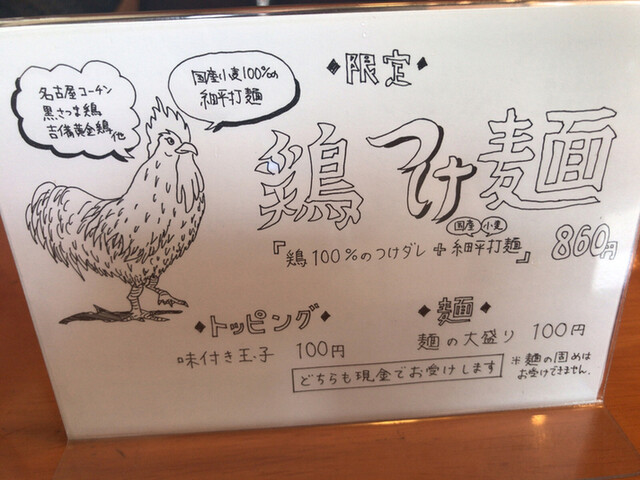 ◆限定◆
国産小麦100%の
細平打麺
名古屋コーチン
黒さつま鶏
吉備黄金鶏 他
鶏つけ麺
国産 小麦
『鶏100%のつけダレ + 細平打麺』 860円
◆トッピング◆
味付き玉子 100円
◆麺◆
麺の大盛り 100円
どちらも現金でお受けします
※麺の固めは
お受けできません。